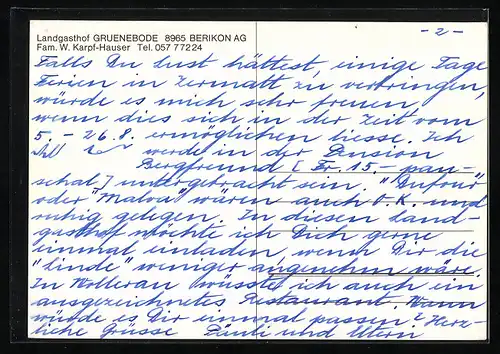 Landgasthof GRUENEBODE 8965 BERIKON AG
Fam. W. Karpf-Hauser Tel. 057 77224
- 2 -
Falls Du Lust hättest, einige Tage
Ferien in Zermatt zu verbringen,
würde es mich sehr freuen,
wenn dies sich in der Zeit vom
5. - 26.8. ermöglichen liesse. Ich
werde in der Pension
Bergfreund [Fr. 15.- pau-
schal] untergebracht sein. "Dufour"
oder "Malva" wären auch O.K. und
ruhig gelegen. In diesen Land-
gasthof möchte ich Dich gerne
einmal einladen, wenn Dir die
"Linde" weniger angenehm wäre.
In Wollerau wüsste ich auch ein
ausgezeichnetes Restaurant. Wann
würde es Dir einmal passen? Herz-
liche Grüsse Päuli und Eltern